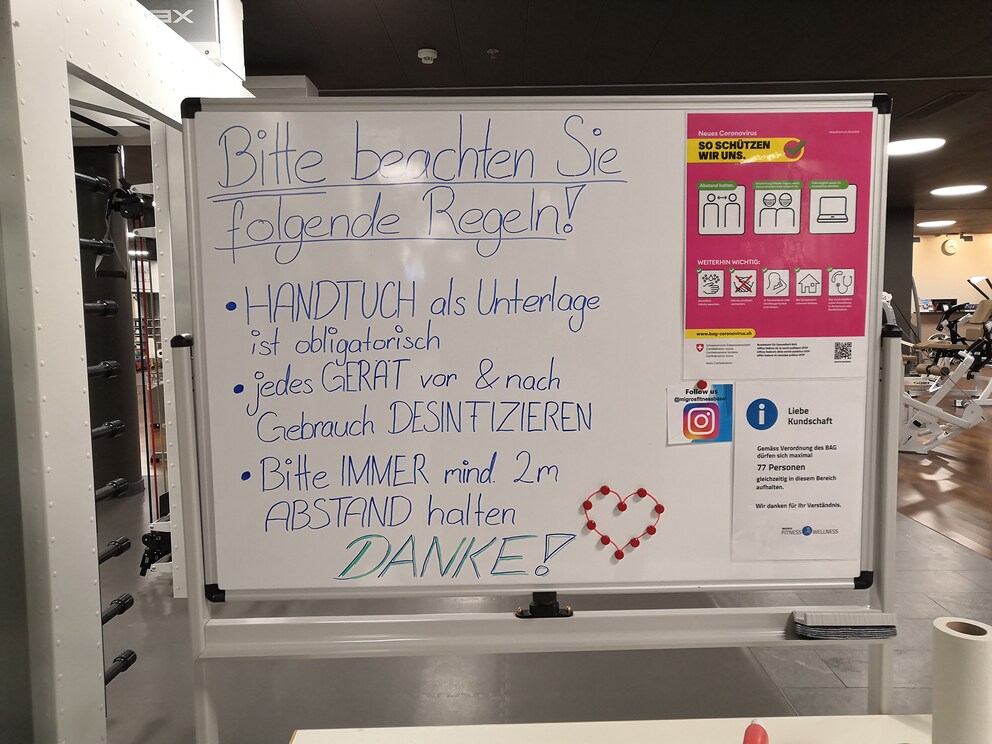 Bitte beachten Sie
folgende Regeln!
• HANDTUCH als Unterlage
ist obligatorisch
• jedes GERÄT vor & nach
Gebrauch DESINFIZIEREN
• Bitte IMMER mind. 2m
ABSTAND halten
DANKE!
Neues Coronavirus
SO SCHÜTZEN
WIR UNS.
Abstand halten.
WEITERHIN WICHTIG:
www.bag-coronavirus.ch
Follow us
@migrosfitnessbasel
i
Liebe
Kundschaft
Gemäss Verordnung des BAG
dürfen sich maximal
77 Personen
gleichzeitig in diesem Bereich
aufhalten.
Wir danken für Ihr Verständnis.
FITNESS WELLNESS